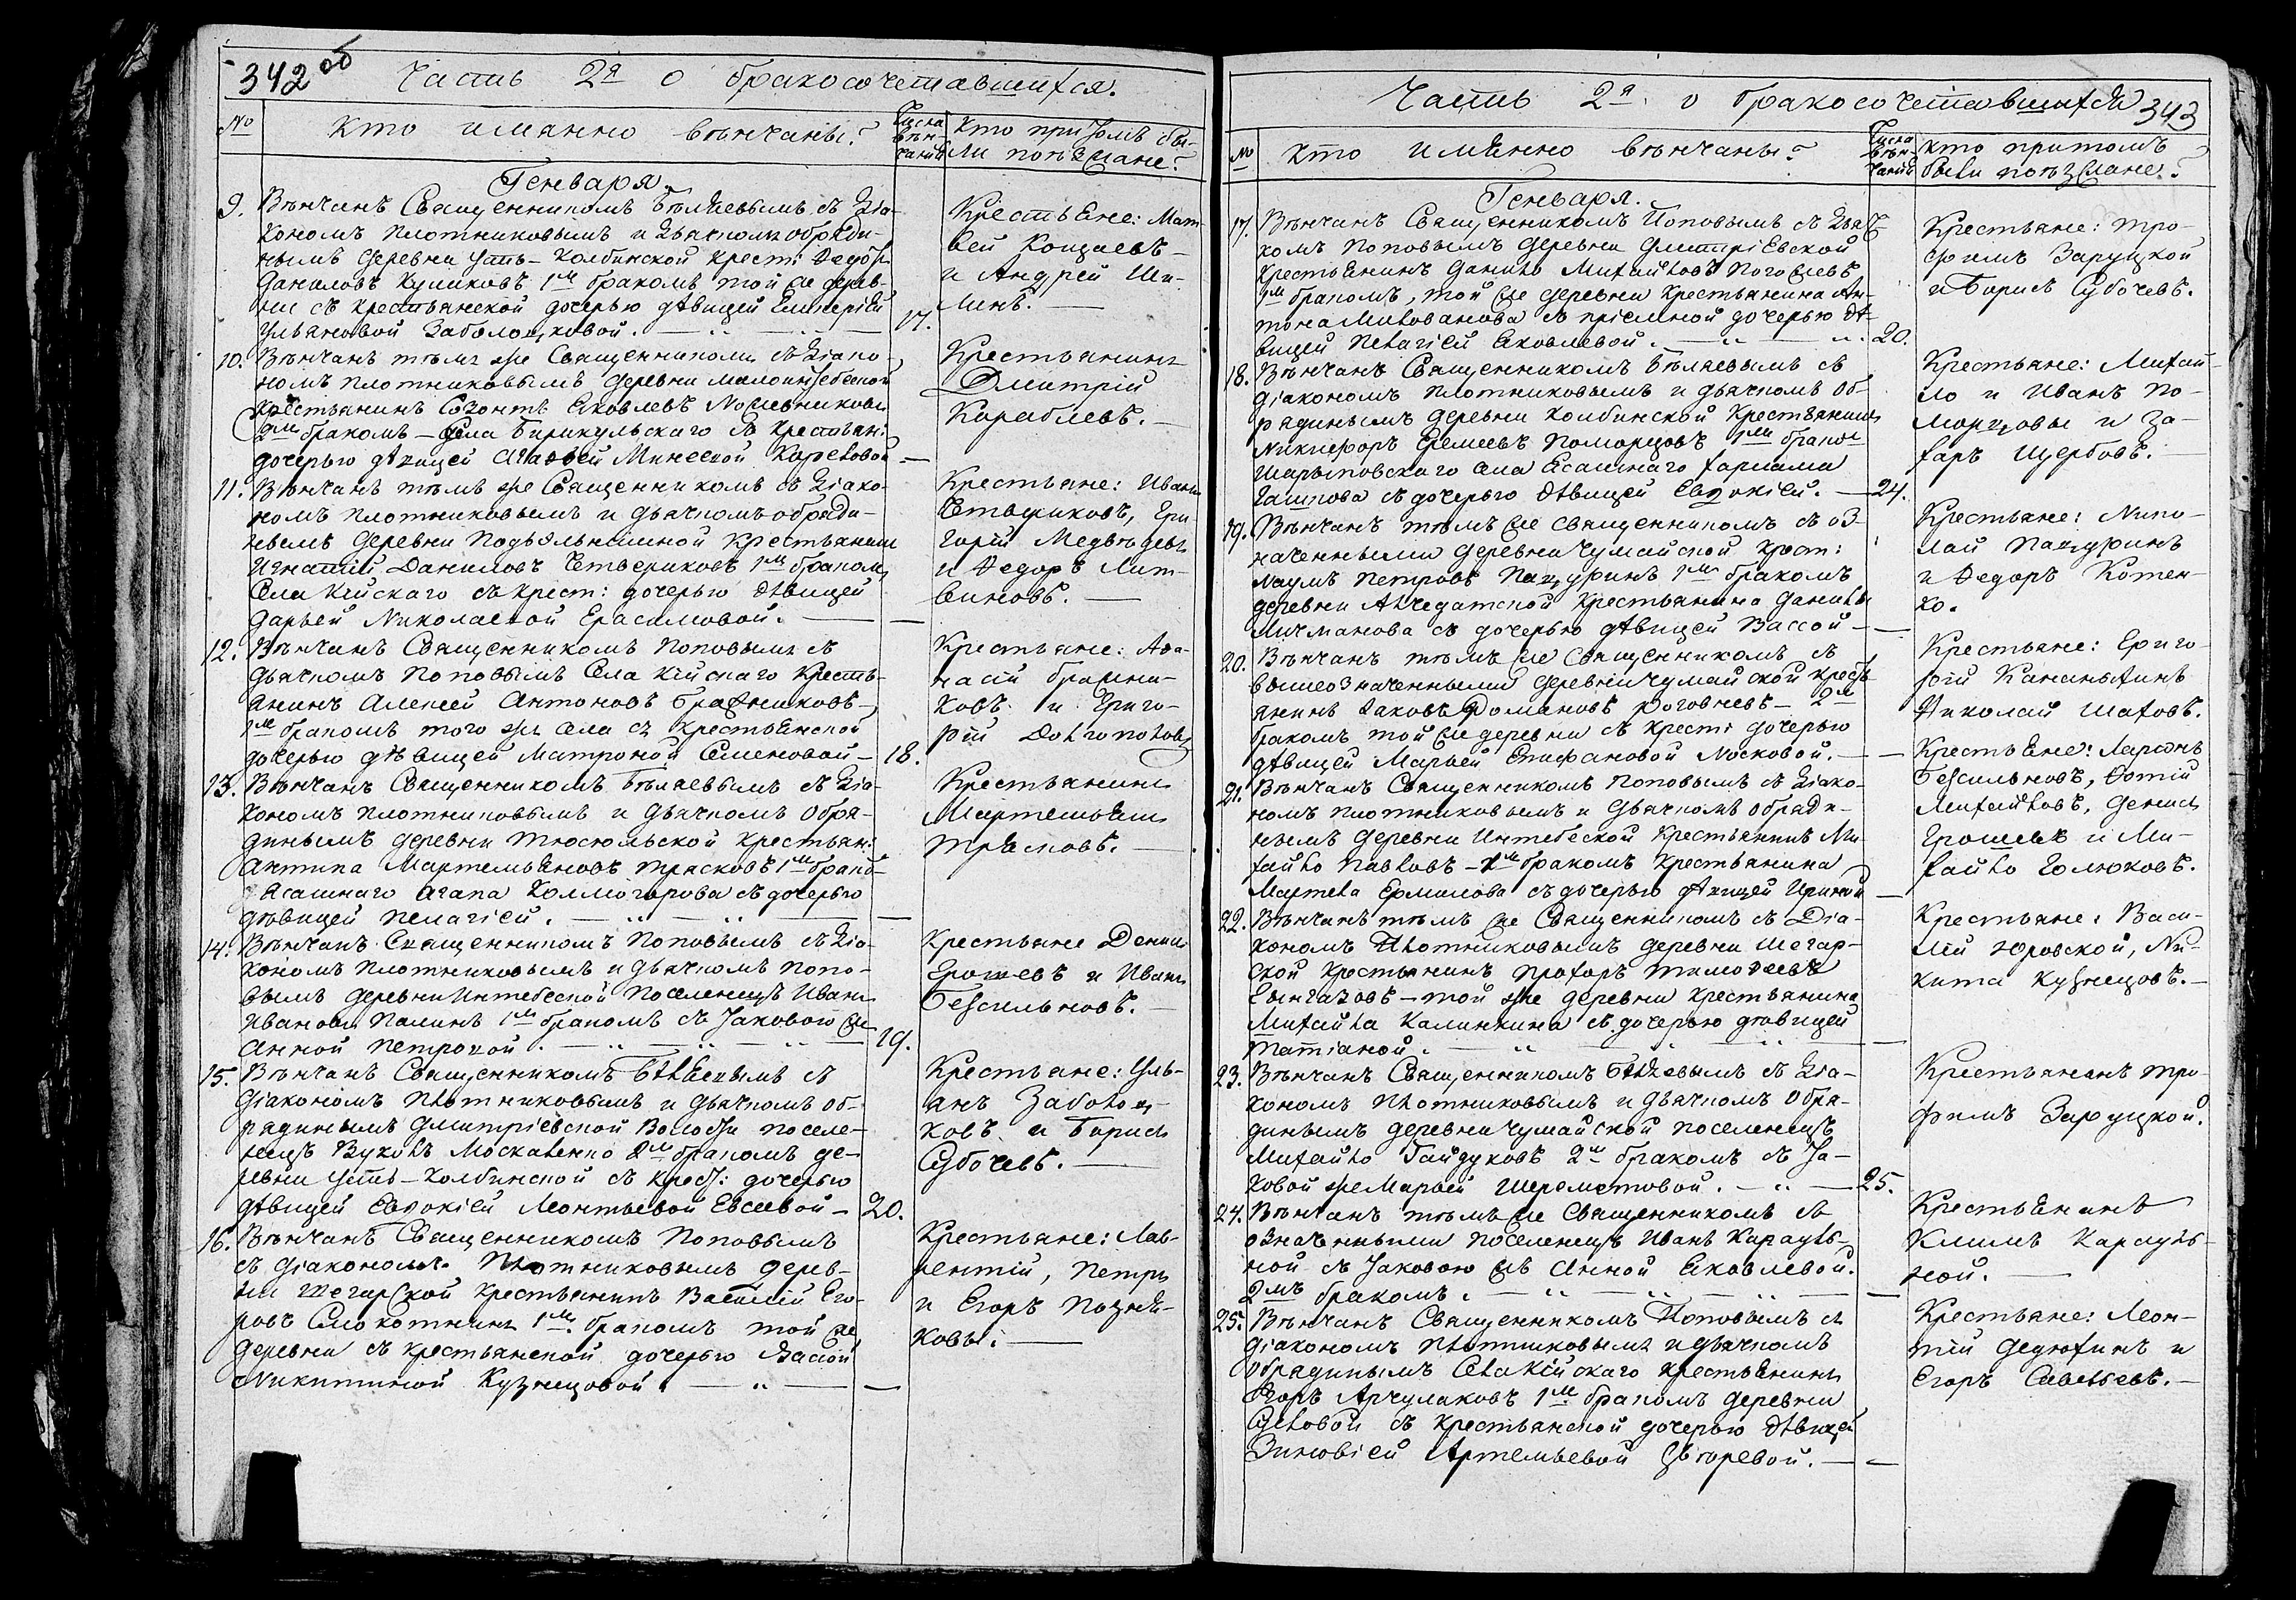 342 об
Часть 2я о бракосочетавшихся.
№
Кто имянно вѣнчаны?
Числа вѣн-
чаній
Кто при томъ бы-
ли поѣзжане?
Генваря.
9. Вѣнчанъ Священникомъ Бѣляевымъ съ Діа-
кономъ Плотниковымъ и дьячкомъ Обряди-
нымъ деревни Усть-Колбинской крест: Ѳедоръ
Даниловъ Куликовъ 1мъ бракомъ той же дерев-
ни съ крестьянской дочерью дѣвицей
Ульяновой Заболоцковой.
17.
Крестьяне: Мат-
вей Кощаевъ
и Андрей Ши-
линъ.
10. Вѣнчанъ тѣмъ же Священникомъ съ Діако-
номъ Плотниковымъ деревни
крестьянинъ Созонтъ Яковлевъ
2мъ бракомъ – села Бирикульскаго съ крестьян:
дочерью дѣвицей Агафьей Минеевой Каревовой
—
Крестьянинъ
Дмитрій
Кораблевъ.
11. Вѣнчанъ тѣмъ же Священникомъ съ Діако-
номъ Плотниковымъ и дьячкомъ Обряди-
нымъ деревни Подъельнишной крестьянинъ
Игнатій Даниловъ Четвериковъ 1мъ бракомъ
Села Кійскаго съ крест: дочерью дѣвицей
Дарьей Николаевой Ерасимовой.
—
Крестьяне: Иванъ
Четвериковъ, Гри-
горій Медвѣдевъ
и Ѳедоръ Лит-
виновъ.
12. Вѣнчанъ Священникомъ Поповымъ съ
дьячкомъ Поповымъ Села Кійскаго кресть-
янинъ Алексей Антоновъ Бражниковъ
1мъ бракомъ того же села съ крестьянской
дочерью дѣвицей Матроной Семеновой —
18.
Крестьяне: Аѳа-
насій Бражни-
ковъ и Григо-
рій Долгополовъ
13. Вѣнчанъ Священникомъ Бѣляевымъ съ Діа-
кономъ Плотниковымъ и дьячкомъ Обря-
динымъ деревни Тюсюльской крестьян:
Антипа Мартемьяновъ Трясковъ 1мъ брако-
Ясашнаго Агапа Колмогорова съ дочерью
дѣвицей Пелагіей.
—
Крестьянинъ
Мартемьянъ
Трясковъ.
14. Вѣнчанъ Священникомъ Поповымъ съ Діа-
кономъ Плотниковымъ и дьячкомъ Попо-
вымъ деревни Интебеской поселенецъ Иванъ
Ивановъ Палинъ 1мъ бракомъ съ таковою же
Анной Петровой.
19.
Крестьяне Денисъ
Ерошевъ и Иванъ
Безсильновъ.
15. Вѣнчанъ Священникомъ Бѣляевымъ съ
Діакономъ Плотниковымъ и дьячкомъ Об-
рядинымъ Дмитріевской Волости поселе-
нецъ Вуколъ Москаленко 2мъ бракомъ де-
ревни Усть-Колбинской съ крест: дочерью
дѣвицей Евдокіей Леонтьевой Евсеевой —
20.
Крестьяне: Уль-
янъ Заболоц-
ковъ и Борисъ
Субочевъ.
16. Вѣнчанъ Священникомъ Поповымъ
съ діакономъ Плотниковымъ дерев-
ни Шегарской крестьянинъ Василій Его-
ровъ Смокотнинъ 1мъ бракомъ той же
деревни съ крестьянской дочерью Вассой
Никитиной Кузнецовой.
—
Крестьяне: Лав-
рентій, Петръ
и Егоръ Позня-
ковы.
Часть 2я о бракосочетавшихся
343
№
Кто имянно вѣнчаны?
Числа вѣн-
чаній
Кто притомъ
были поѣзжане?
Генваря.
17. Вѣнчанъ Священникомъ Поповымъ съ Дьяч-
комъ Поповымъ деревни Дмитріевской
крестьянинъ Данило Михайловъ
1мъ бракомъ, той же деревни крестьянина Ан-
тона Милованова съ пріемной дочерью дѣ-
вицей Пелагіей Яковлевой.
20.
Крестьяне: Тро-
фимъ Заруцкой
и Борисъ Субочевъ.
18. Вѣнчанъ Священникомъ Бѣляевымъ съ
діакономъ Плотниковымъ и дьячкомъ Об-
рядинымъ деревни Колбинской крестьянинъ
Никифоръ Еремеевъ Поморцовъ 1мъ брако-
Шарыповскаго села Ясашнаго Харлама
съ дочерью дѣвицей Евдокіей.
24.
Крестьяне: Михай-
ло и Иванъ По-
морцовы и За-
харъ Щербовъ.
19. Вѣнчанъ тѣмъ же священникомъ съ оз-
наченными деревни Чумайской крест:
Наумъ Петровъ Пацуринъ 1мъ бракомъ
деревни Анчедатской крестьянина Данилы
Личманова съ дочерью дѣвицей Вассой —
—
Крестьяне: Нико-
лай Пацуринъ
и Ѳедоръ Котен-
ко.
20. Вѣнчанъ тѣмъ же Священникомъ съ
вышеозначенными деревни Чумайской кресть-
янинъ Яковъ Романовъ Роговцевъ — 2мъ
бракомъ той же деревни съ крест: дочерью
дѣвицей Марьей Епифановой Носковой.
—
Крестьяне: Григо-
рій Кананыхинъ
Николай Шаховъ.
21. Вѣнчанъ Священникомъ Поповымъ съ Діако-
номъ Плотниковымъ и дьячкомъ Обряди-
нымъ деревни Интебеской крестьянинъ Ми-
хайло Павловъ – 1мъ бракомъ крестьянина
Мартела Ермилова съ дочерью дѣвицей Ириной
—
Крестьяне: Ларіонъ
Безсильновъ, Фотій
Михайловъ, Денисъ
Ерошевъ и Ми-
хайло Голюковъ.
22. Вѣнчанъ тѣмъ же Священникомъ съ Діа-
кономъ Плотниковымъ деревни Шегар-
ской крестьянинъ Прохоръ Тимоѳеевъ
Сынгазовъ – той же деревни крестьянина
Михайла Калинкина съ дочерью дѣвицей
Татіаной.
—
Крестьяне: Васи-
лій Юровской, Ни-
кита Кузнецовъ.
23. Вѣнчанъ Священникомъ Бѣляевымъ съ Діа-
кономъ Плотниковымъ и дьячкомъ Обря-
динымъ деревни Чумайской поселенецъ
Михайло Гайдуковъ 2мъ бракомъ съ та-
ковой же Марьей Шереметовой.
25.
Крестьянинъ Тро-
фимъ Заруцкой.
24. Вѣнчанъ тѣмъ же Священникомъ съ
означенными поселенецъ Иванъ Карауль-
ной съ таковою же Анной Яковлевой.
2мъ бракомъ.
—
Крестьянинъ
Климъ Карауль-
ной.
25. Вѣнчанъ Священникомъ Поповымъ съ
діакономъ Плотниковымъ и дьячкомъ
Обрядинымъ Села Кійскаго крестьянинъ
Егоръ Арчулаковъ 1мъ бракомъ деревни
Сусловой съ крестьянской дочерью дѣвицей
Зиновіей Артемьевой
—
Крестьяне: Леон-
тій Дедюхинъ и
Егоръ Савельевъ.